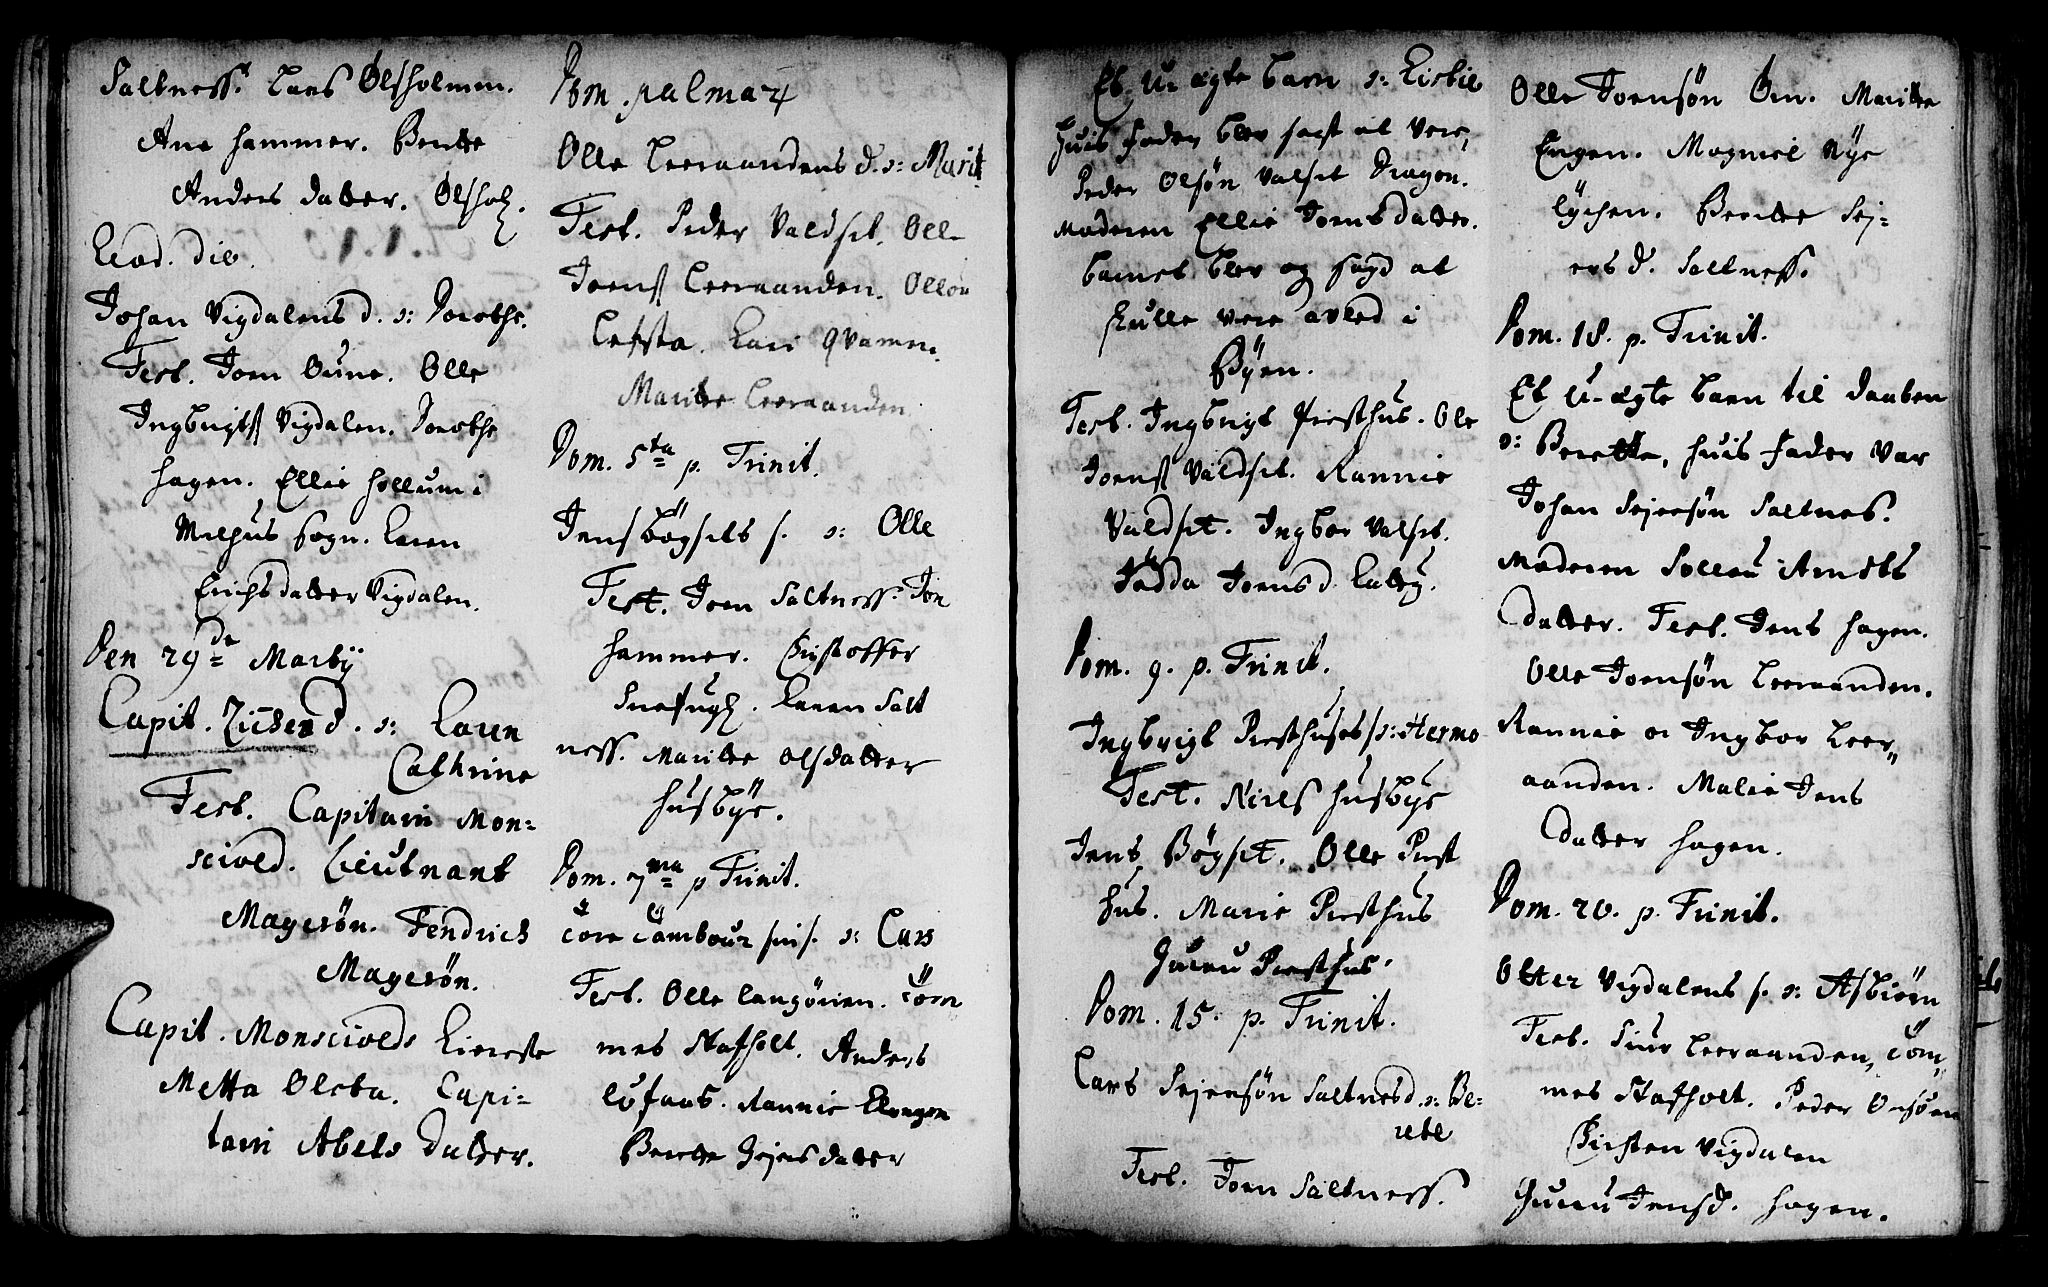 Saltness. Lars Ølsholmen.
Ane hammer. Berette
Anders datter. Ølsholm.
Eod. die.
Johan Vigdalens d. n: Dorothe.
Test. Joen Oune. Olle
Ingbrigts Vigdalen. Dorothe
hagen. Ellie hollum i
Melhus Sogn. Karen
Erichsdatter Vigdalen.
Den 29de Martij
Capit. d. n: Karen
Cathrine
Test. Capitain Mon-
sciold. Lieutnant
Magesøn. Fendrich
Magesøn.
Capit. Monsciolds Kiereste
Metta Olsta. Capi-
tain Abels datter.
Dom. palmar
Olle Leeraandens d. n: Marit
Test. Peder Valdset. Olle
Joens Leeraanden. Ollou
Lefsta. Kari qvamm.
Maritte Leeraanden
Dom. 5ta p. Trinit.
Jens Bøgsets s. n: Olle
Test. Joen Saltness. Jon
hammer. Christoffer
Snefugl. Karen Salt
ness. Maritte Olsdatter
Husbye.
Dom. 7ma p Trinit.
Tore Tambour s. n: Lars
Test. Olle Langørien. Tom
mes Stafholt. Anders
Løfaas. Rannie
Berette datter
Et U-ægte barn n: Lisbie
huis fader blev sagt at vere,
Peder Olsøn Valset Dragon.
Moderen Ellie Joensdatter.
barnet blev og sagd at
skulle vere avled i
Byen.
Test. Ingbrigt Presthus. Ole
Joens Valdset. Rannie
Valdset. Ingbor Valset.
Joensd.
Dom. 9. p. Trinit.
Ingbrigt Presthuses s: Hermo
Test. Niels Husbye
Jens Bøgset. Olle Prest
hus. Marie Presthus
Guru Presthus.
Dom. 15. p. Trinit.
Lars Sejersøn Saltnes d. n: Be-
rete
Test. Joen Saltness.
Olle Joensøn Øen. Maritte
Engen. Magniel Nye
lychen. Berette Sej-
ers d. Saltness.
Dom. 18. p. Trinit.
Et U-ægte barn til Daaben
n: Berette, huis fader var
Johan Sejersøn Saltnes.
Moderen Sollou Arnets
datter. Test. Jens hagen.
Olle Joensøn Leeraanden.
Rannie oc Ingbor Leer-
aanden. Malie Jens
datter hagen.
Dom. 20. p. Trinit.
Otter Vigdalens s. n: Asbiørn
Test. Siur Leeraanden, Tom,
mes Stafholt. Peder
Kirsten Vigdalen
Guru Jensd. hagen.